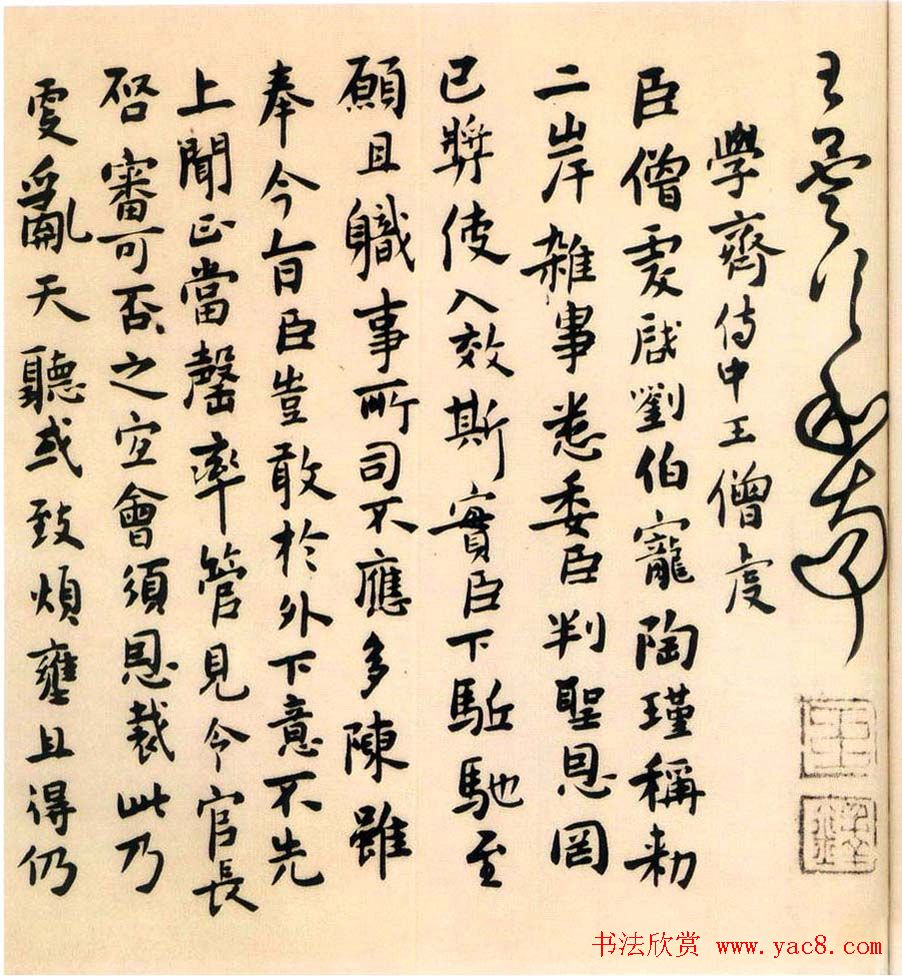 學齊侍中王僧虔
臣僧虔啟劉伯寵陶瑾稱勑
二岸雜事悉委臣判聖恩罔
已獎使入效斯實臣下駈馳至
願且職事所司不應多陳雖
奉今旨臣豈敢於外下意不先
上聞正當罄率管見令官長
啓審可否之宜會須恩裁此乃
更亂天聽或致煩壅且得仍
书法欣赏 www.yac8.com